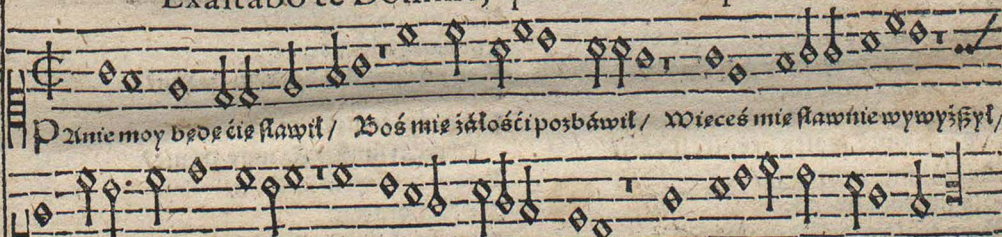 Exaltabo te Domine,
PAnie moy będę ćię sławił / Boś mię żáłośći pozbáwił / Więceś mię sławnie wywyżßył /